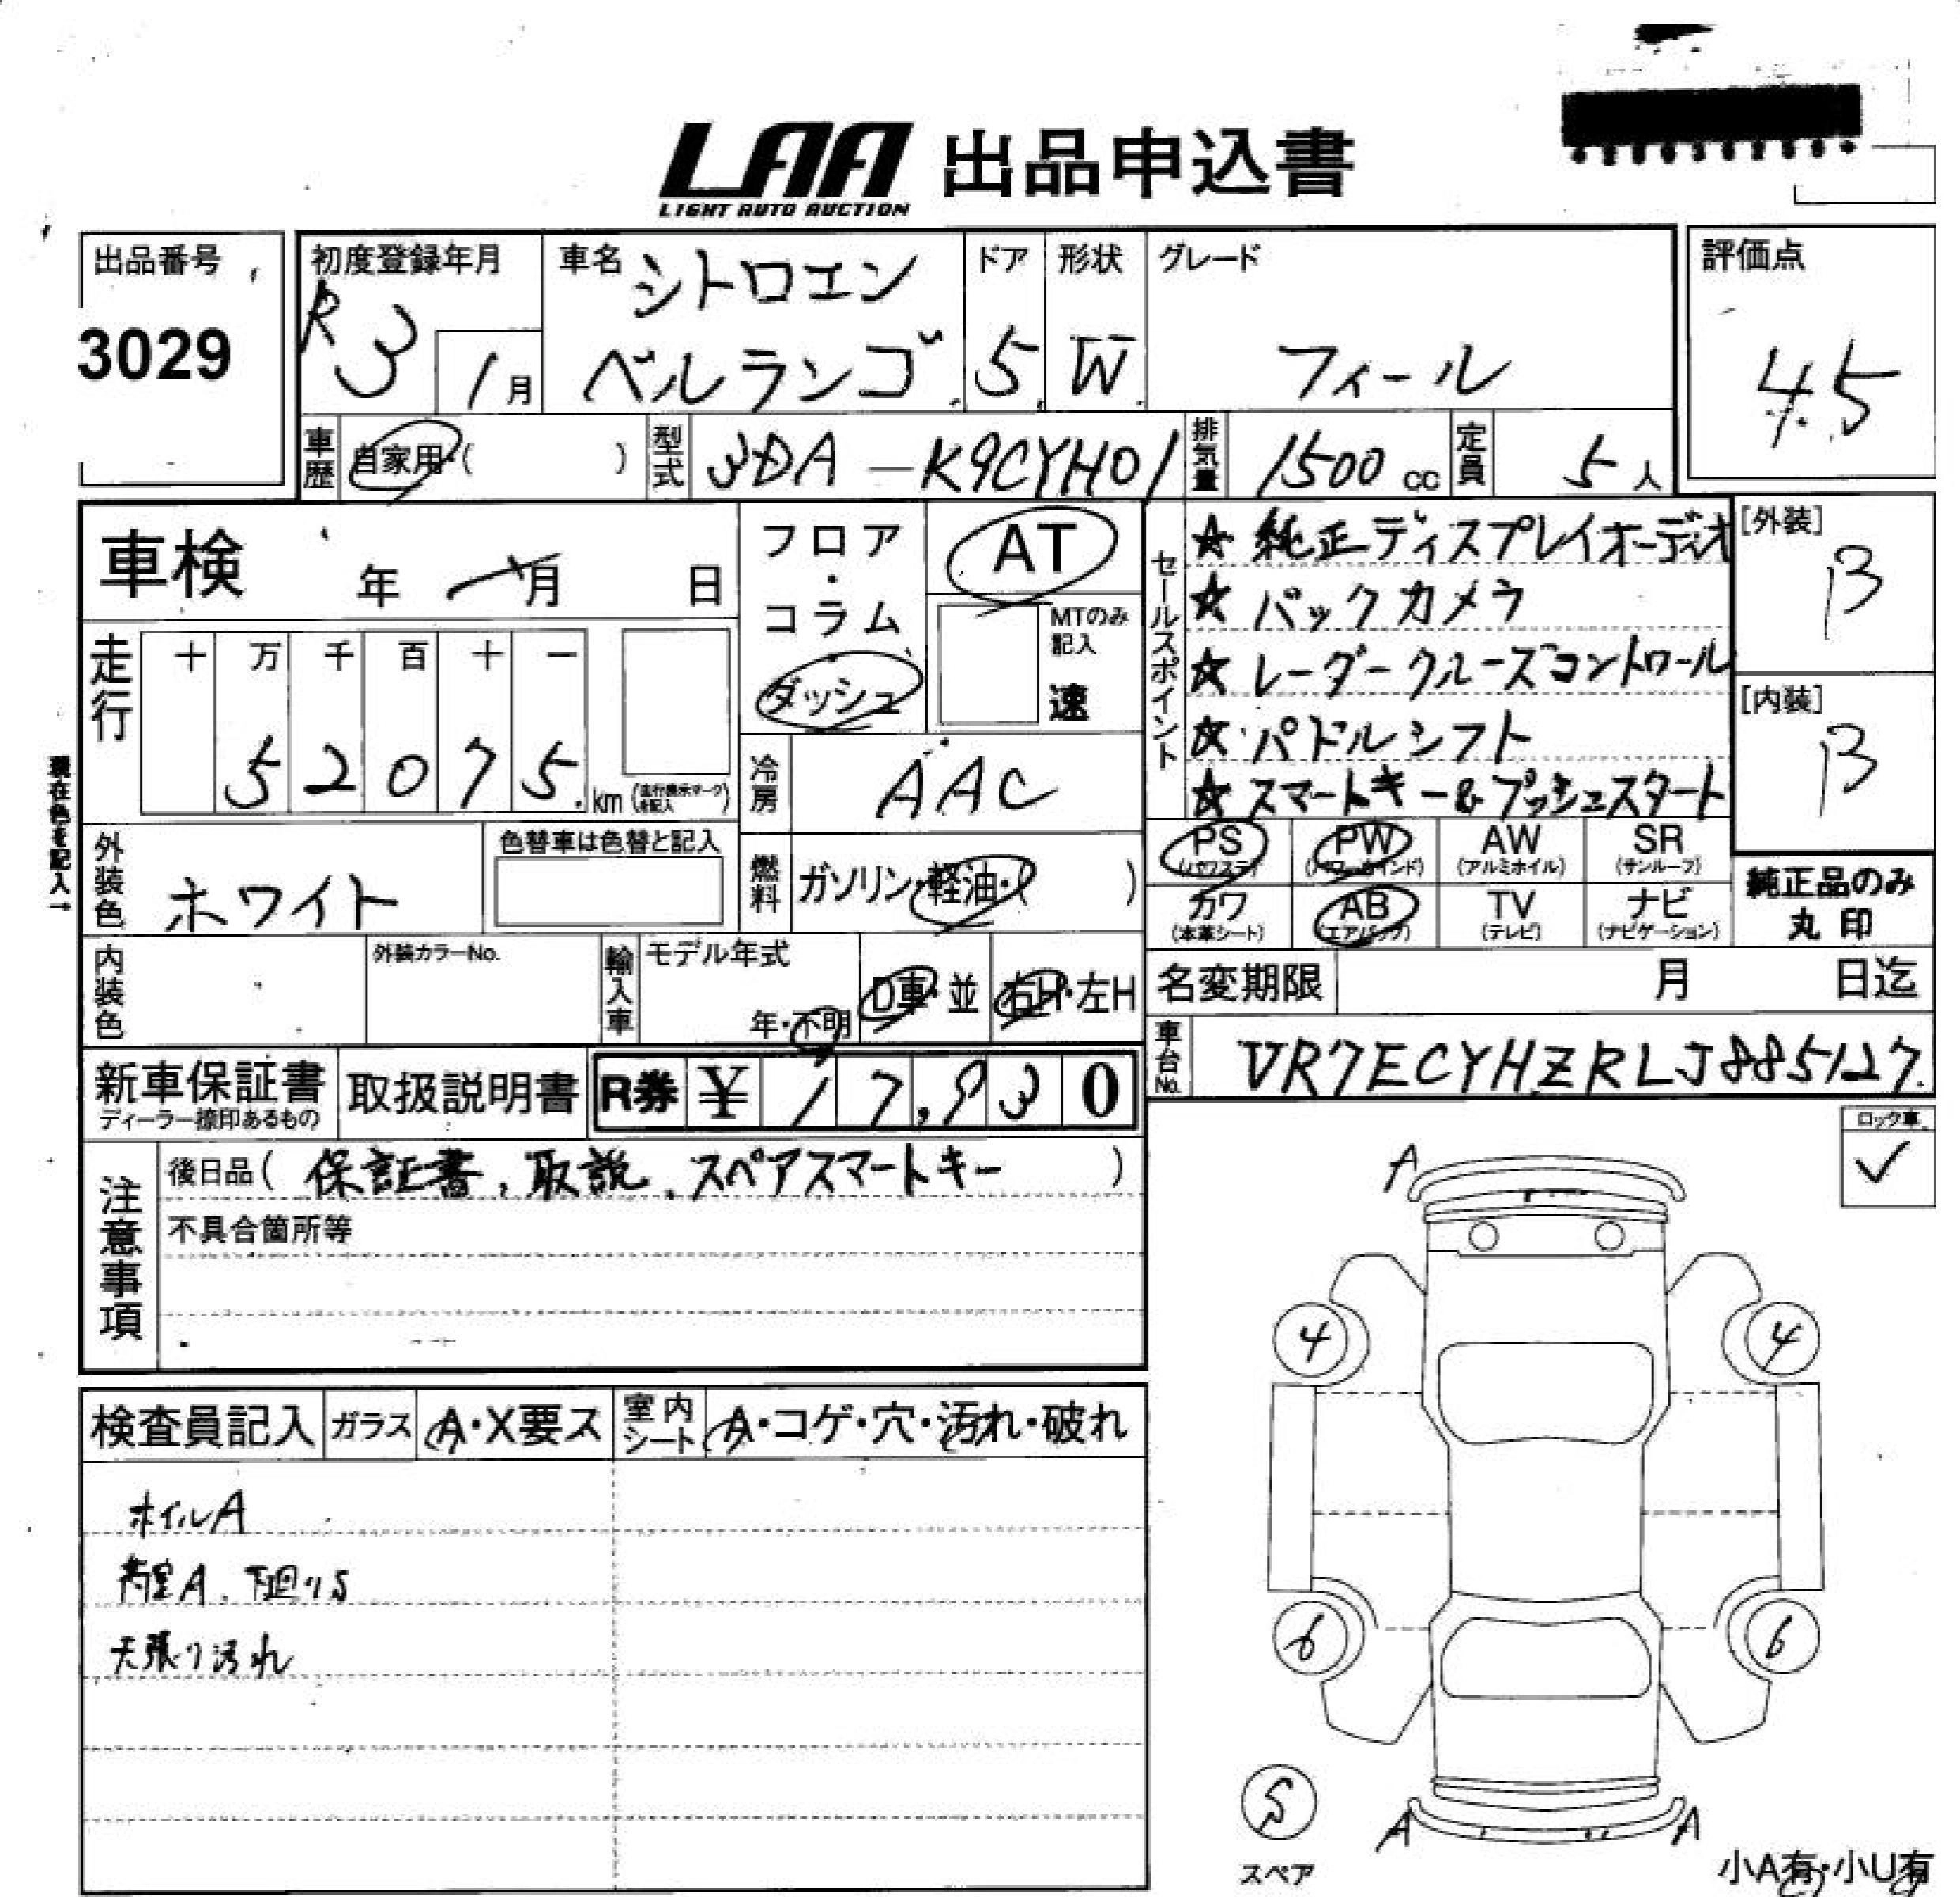 LAA 出品申込書
LIGHT AUTO AUCTION
出品番号
3029
初度登録年月
R3 1月
車名 シトロエン
ベルランゴ
ドア
5
形状
W
グレード
フィール
評価点
4.5
車歴 自家用・( )
型式 3DA-K9CYH01
排気量 1500cc
定員 5人
車検 年 月 日
フロア・コラム・ダッシュ
AT
MTのみ記入
速
走行
十 万 千 百 十 一
5 2 0 7 5 km (走行表示マークを記入)
現在色を記入→
冷房 AAC
外装色 ホワイト
色替車は色替と記入
燃料 ガソリン・軽油・( )
内装色
外装カラーNo.
輸入車
モデル年式
年・不明
D車・並
右H・左H
セールスポイント
☆ 純正ディスプレイオーディオ
☆ バックカメラ
☆ レーダークルーズコントロール
☆ パドルシフト
☆ スマートキー&プッシュスタート
[外装]
B
[内装]
B
PS (パワステ)
PW (パワーウインド)
AW (アルミホイル)
SR (サンルーフ)
カワ (本革シート)
AB (エアバック)
TV (テレビ)
ナビ (ナビゲーション)
純正品のみ
丸印
名変期限 月 日迄
車台No. VR7ECYHZRLJ885127
新車保証書
ディーラー捺印あるもの
取扱説明書
R券 ¥ 17,930
注意事項
後日品( 保証書、取説、スペアスマートキー )
不具合箇所等
ロック車
✓
検査員記入
ガラス A・X要ス
室内シート A・コゲ・穴・汚れ・破れ
ホイルA
荷室A、下廻りS
天張り汚れ
A
4 4
6 6
S
スペア
A A
小A有・小U有